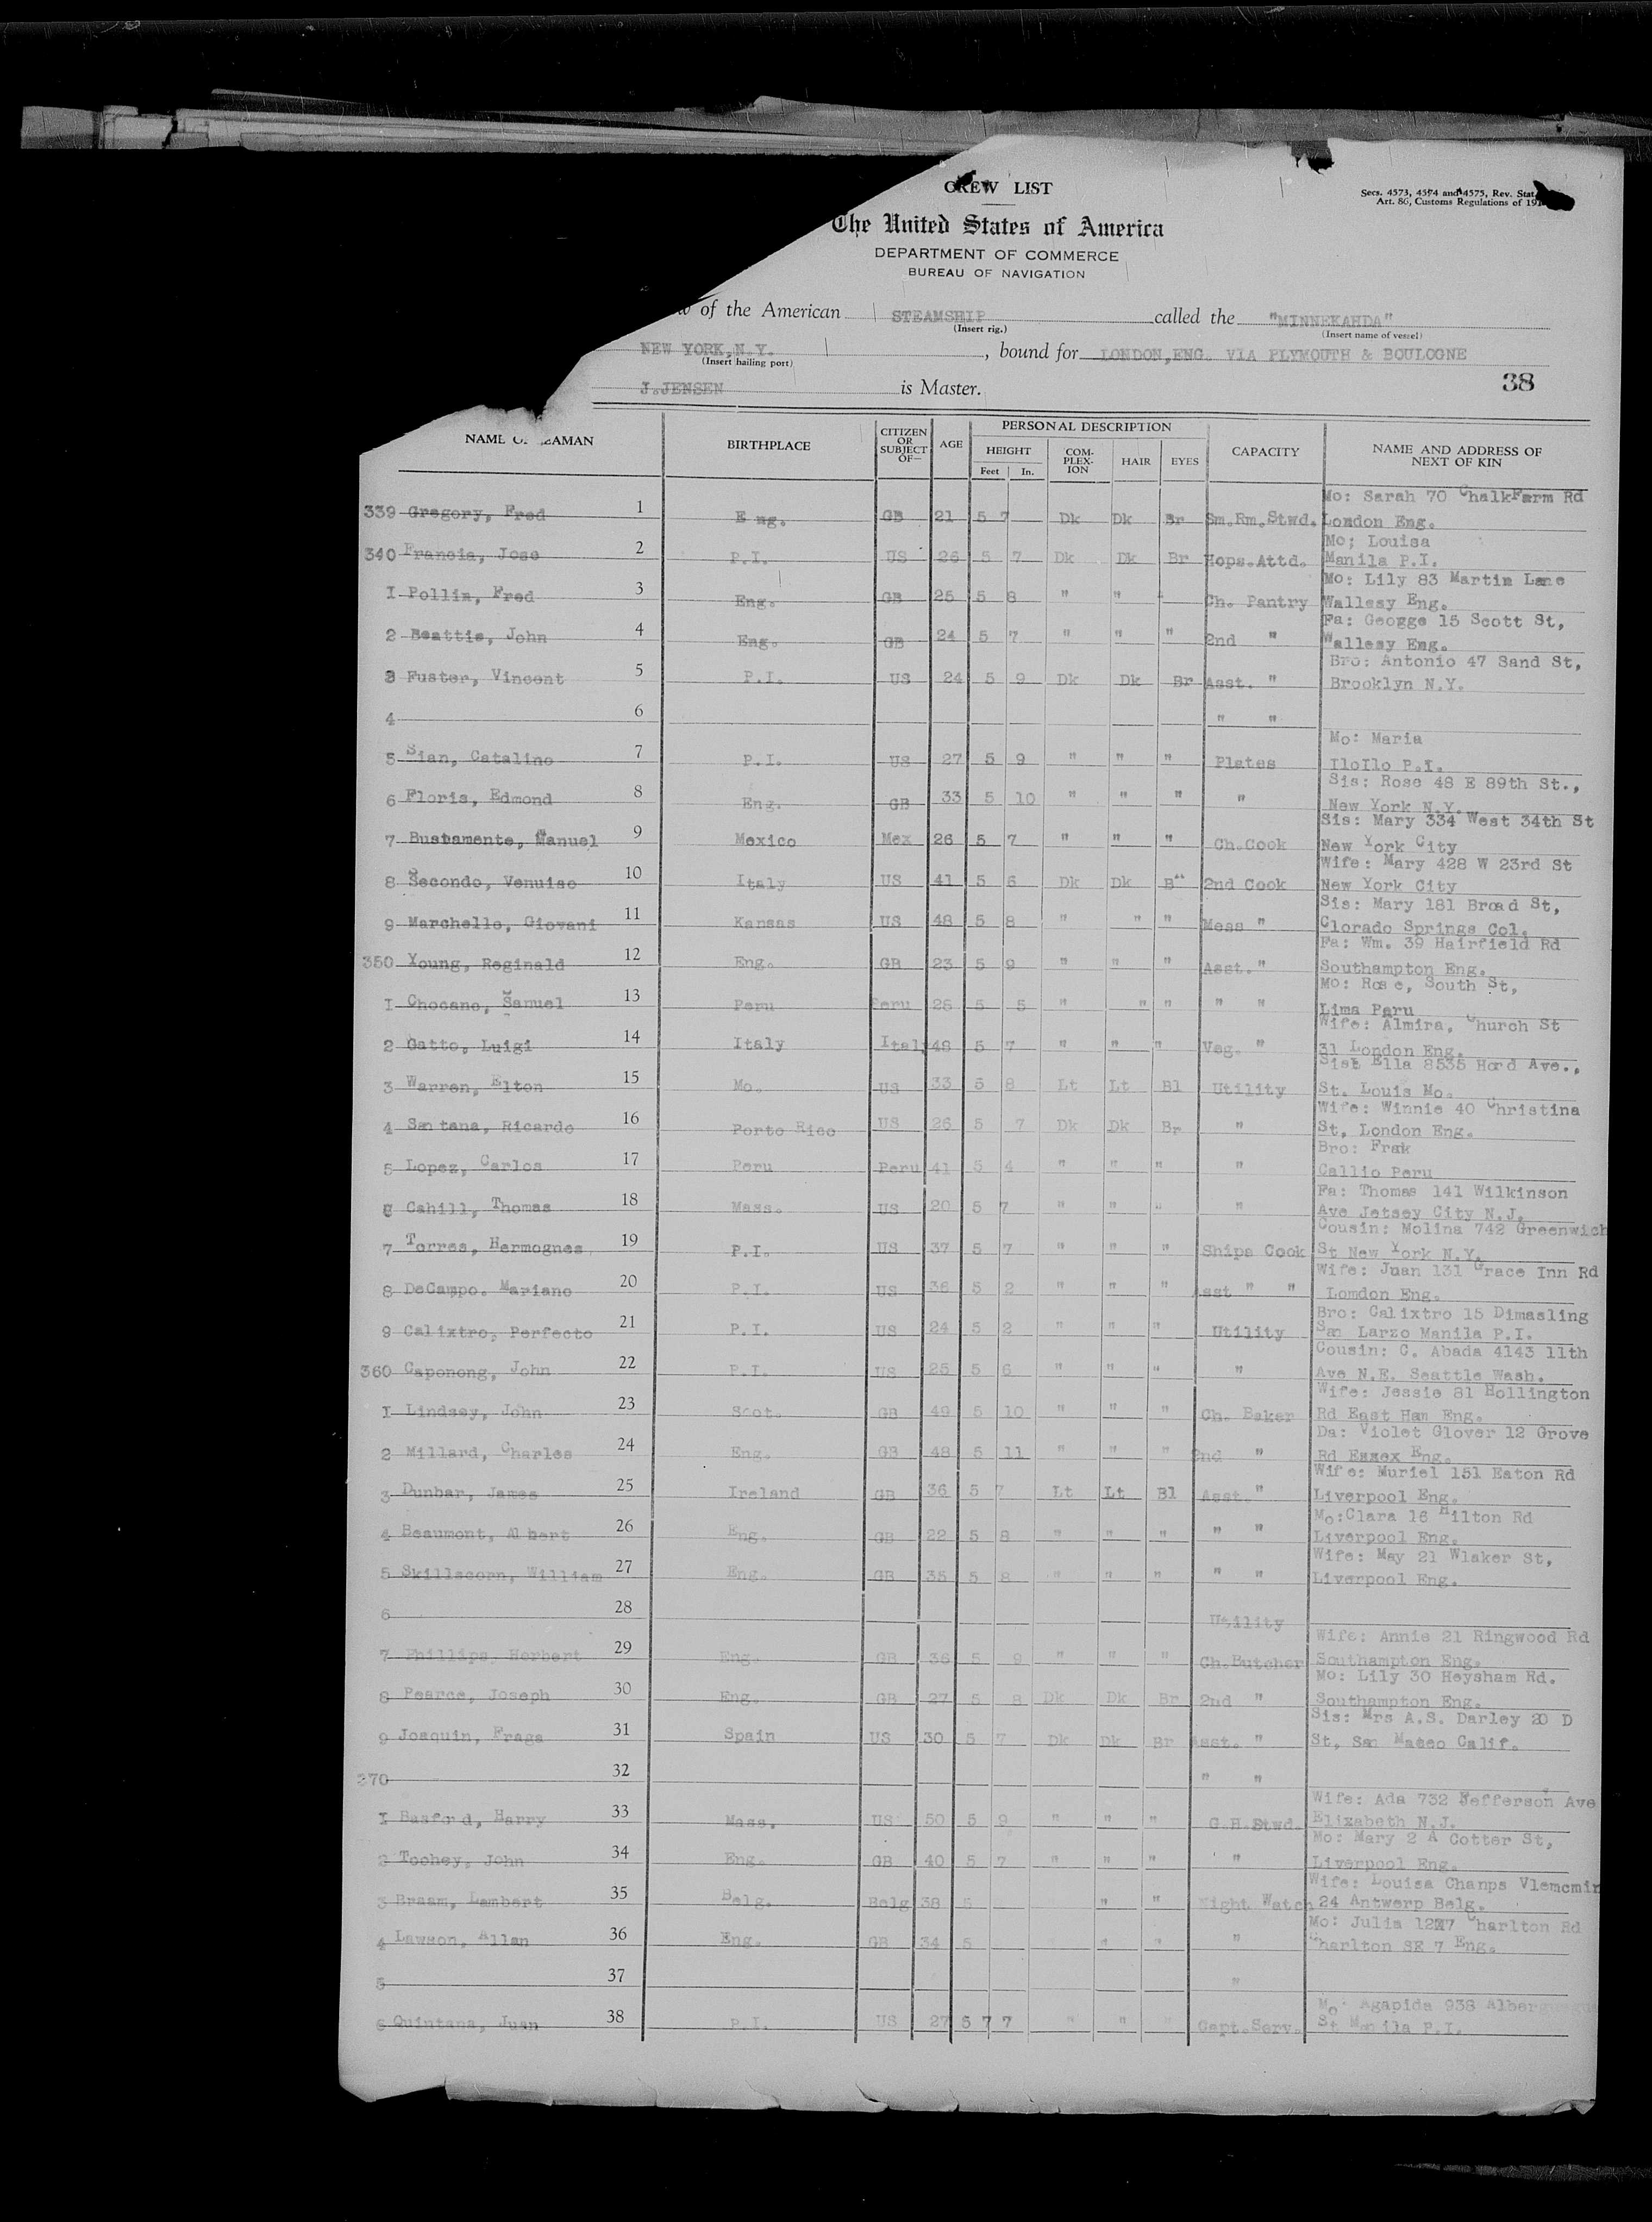 CREW LIST
Secs. 4573, 4574 and 4575, Rev. Stat.
Art. 86, Customs Regulations of
The United States of America
DEPARTMENT OF COMMERCE
BUREAU OF NAVIGATION
of the American STEAMSHIP called the "MINNEKAHDA"
(Insert rig.) (Insert name of vessel)
NEW YORK,N.Y. , bound for LONDON,ENG. VIA PLYMOUTH & BOULOGNE
(Insert hailing port)
J.JENSEN is Master. 38
NAME OF SEAMAN BIRTHPLACE CITIZEN OR SUBJECT OF— AGE PERSONAL DESCRIPTION HEIGHT Feet In. COM-PLEX-ION HAIR EYES CAPACITY NAME AND ADDRESS OF NEXT OF KIN
Mo: Sarah 70 ChalkFarm Rd
339 Gregory, Fred 1 Eng. GB 21 5 7 Dk Dk Br Sm.Rm.Stwd. London Eng.
Mo; Louisa
340 Francia, Jose 2 P.I. US 26 5 7 Dk Dk Br Hops.Attd. Manila P.I.
Mo: Lily 83 Martin Lane
I Pollin, Fred 3 Eng. GB 25 5 8 " " " Ch. Pantry Wallesy Eng.
Fa: Geogge 15 Scott St,
2 Beattie, John 4 Eng. GB 24 5 7 " " " 2nd " Wallesy Eng.
Bro: Antonio 47 Sand St,
3 Fuster, Vincent 5 P.I. US 24 5 9 Dk Dk Br Asst. " Brooklyn N.Y.
4 6 " "
Mo: Maria
5 Sian, Catalino 7 P.I. US 27 5 9 " " " Plates IloIlo P.I.
Sis: Rose 48 E 89th St.,
6 Floris, Edmond 8 Eng. GB 33 5 10 " " " " New York N.Y.
Sis: Mary 334 West 34th St
7 Bustamente, Manuel 9 Mexico Mex 26 5 7 " " " Ch.Cook New York City
Wife: Mary 428 W 23rd St
8 Secondo, Venuiso 10 Italy US 41 5 6 Dk Dk B" 2nd Cook New York City
Sis: Mary 181 Broad St,
9 Marchello, Giovani 11 Kansas US 48 5 8 " " " Mess " Clorado Springs Col.
Fa: Wm. 39 Hairfield Rd
350 Young, Reginald 12 Eng. GB 23 5 9 " " " Asst." Southampton Eng.
Mo: Rose, South St,
I Chocano, Samuel 13 Peru Peru 26 5 5 " " " " " Lima Peru
Wife: Almira, Church St
2 Gatto, Luigi 14 Italy Italy 48 5 7 " " " Veg. " 31 London Eng.
Sist Ella 8535 Hord Ave.,
3 Warren, Elton 15 Mo. US 33 5 8 Lt Lt Bl Utility St. Louis Mo.
Wife: Winnie 40 Christina
4 Santana, Ricardo 16 Porto Rico US 26 5 7 Dk Dk Br " St, London Eng.
Bro: Frak
5 Lopez, Carlos 17 Peru Peru 41 5 4 " " " " Callio Peru
Fa: Thomas 141 Wilkinson
6 Cahill, Thomas 18 Mass. US 20 5 7 " " " " Ave Jetsey City N.J.
Cousin: Molina 742 Greenwich
7 Torres, Hermognes 19 P.I. US 37 5 7 " " " Ships Cook St New York N.Y.
Wife: Juan 131 Grace Inn Rd
8 DeCampo. Mariano 20 P.I. US 36 5 2 " " " Asst " " Lomdon Eng.
Bro: Calixtro 15 Dimasling
9 Calixtro, Perfecto 21 P.I. US 24 5 2 " " " Utility San Larzo Manila P.I.
Cousin: C. Abada 4143 11th
360 Caponong, John 22 P.I. US 25 5 6 " " " " Ave N.E. Seattle Wash.
Wife: Jessie 81 Hollington
I Lindsey, John 23 Scot. GB 49 5 10 " " " Ch. Baker Rd East Ham Eng.
Da: Violet Glover 12 Grove
2 Millard, Charles 24 Eng. GB 48 5 11 " " " 2nd " Rd Essex Eng.
Wife: Muriel 151 Eaton Rd
3 Dunbar, James 25 Ireland GB 36 5 7 Lt Lt Bl Asst." Liverpool Eng.
Mo:Clara 16 Hilton Rd
4 Beaumont, Albert 26 Eng. GB 22 5 8 " " " " " Liverpool Eng.
Wife: May 21 Wlaker St,
5 Skillscorn, William 27 Eng. GB 35 5 8 " " " " " Liverpool Eng.
6 28 Utility
Wife: Annie 21 Ringwood Rd
7 Phillips, Herbert 29 Eng. GB 36 5 9 " " " Ch.Butcher Southampton Eng.
Mo: Lily 30 Heysham Rd.
8 Pearce, Joseph 30 Eng. GB 27 5 8 Dk Dk Br 2nd " Southampton Eng.
Sis: Mrs A.S. Darley 20 D
9 Joaquin, Fraga 31 Spain US 30 5 7 Dk Dk Br Asst. " St, San Mateo Calif.
370 32 " "
Wife: Ada 732 Jefferson Ave
I Basford, Harry 33 Mass. US 50 5 9 " " " G.H.Stwd. Elizabeth N.J.
Mo: Mary 2 A Cotter St,
2 Toohey, John 34 Eng. GB 40 5 7 " " " " Liverpool Eng.
Wife: Louisa Chanps Vlemcmin
3 Braam, Lambert 35 Belg. Belg 38 5 " " Night Watch 24 Antwerp Belg.
Mo: Julia Charlton Rd
4 Lawson, Allan 36 Eng. GB 34 5 " " " Charlton SE 7 Eng.
5 37 "
Mo: Agapida 938
6 Quintana, Juan 38 P.I. US 27 5 7 7 " " " Capt.Serv. St Manila P.I.